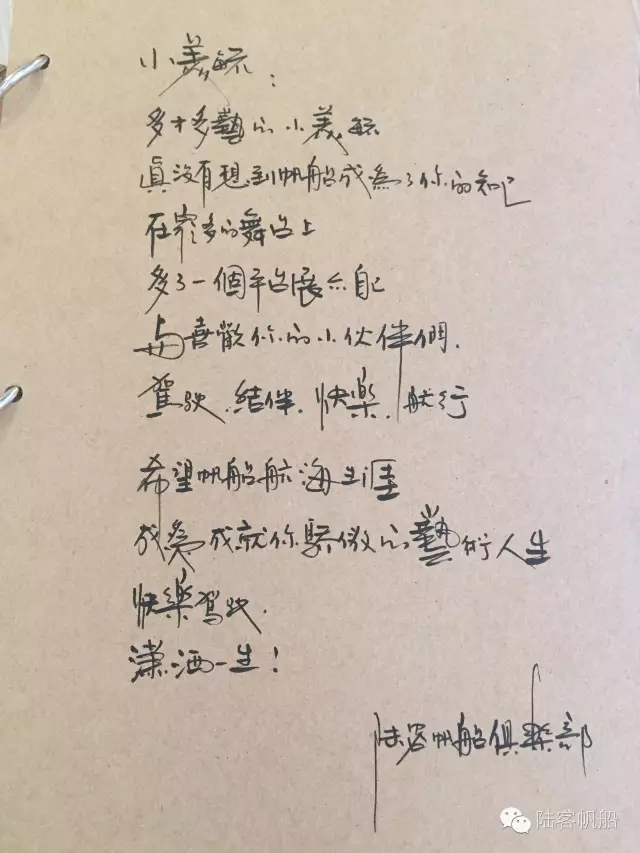 小義毓：
多才多藝的小義毓
真沒有想到帆船成為了你的知己
在眾多的舞台上
多了一個平台展示自己
与喜歡你的小伙伴們.
駕駛.結伴.快樂.航行
希望帆船航海生涯
成為成就你驕傲的藝術人生
快樂駕駛.
瀟洒一生！
陆客帆船俱樂部
陆客帆船